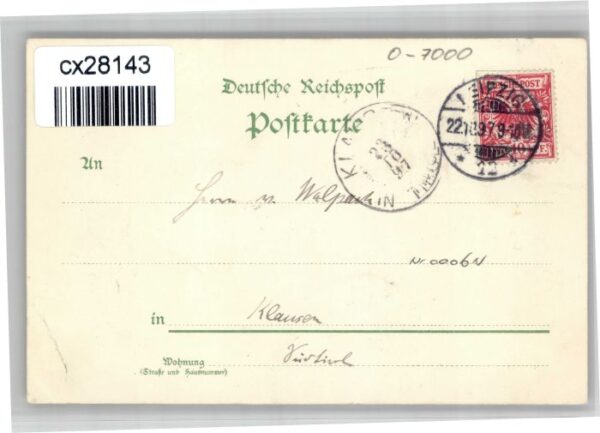 cx28143
0-7000
Deutsche Reichspost
Postkarte
LEIPZIG
22 10 97 9-10N
* 12 *
POST
KLAUSEN
23
10
97
An
Herrn v. Walpach
Nr. 0006N
in Klausen
Südtirol
Wohnung
(Straße und Hausnummer)